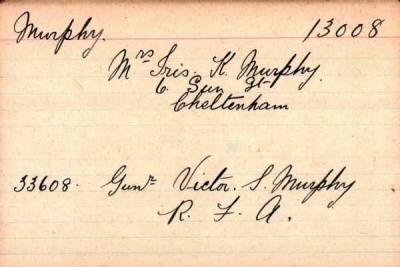 Murphy. 13008
Mrs Iris. K. Murphy.
6. Sun St
Cheltenham
33608. Gunr Victor. S. Murphy
R. F. A.